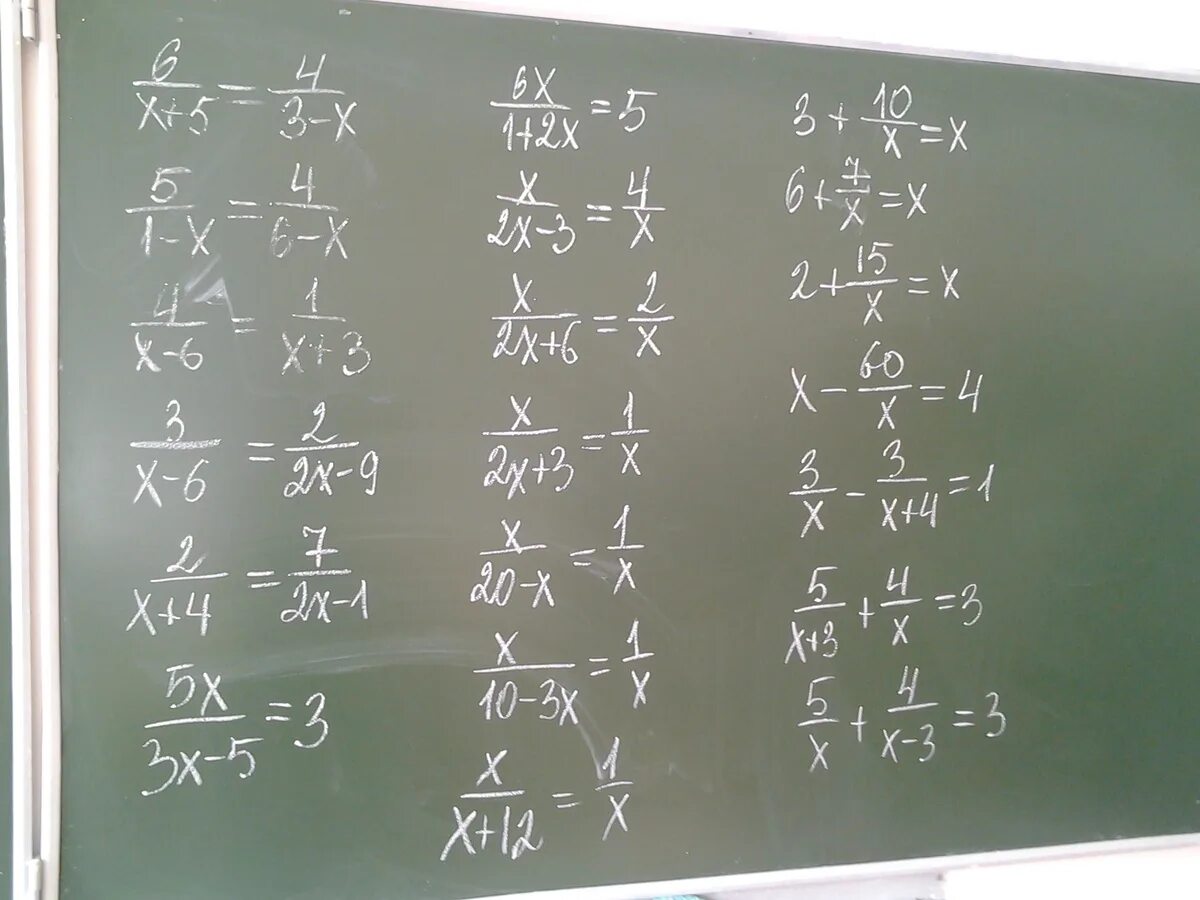 6/(x+5) = 4/(3-x)
5/(1-x) = 4/(6-x)
4/(x-6) = 1/(x+3)
3/(x-6) = 2/(2x-9)
2/(x+4) = 7/(2x-1)
5x/(3x-5) = 3
6x/(1+2x) = 5
x/(2x-3) = 4/x
x/(2x+6) = 2/x
x/(2x+3) = 1/x
x/(20-x) = 1/x
x/(10-3x) = 1/x
x/(x+12) = 1/x
3 + 10/x = x
6 + 7/x = x
2 + 15/x = x
x - 60/x = 4
3/x - 3/(x+4) = 1
5/(x+3) + 4/x = 3
5/x + 4/(x-3) = 3